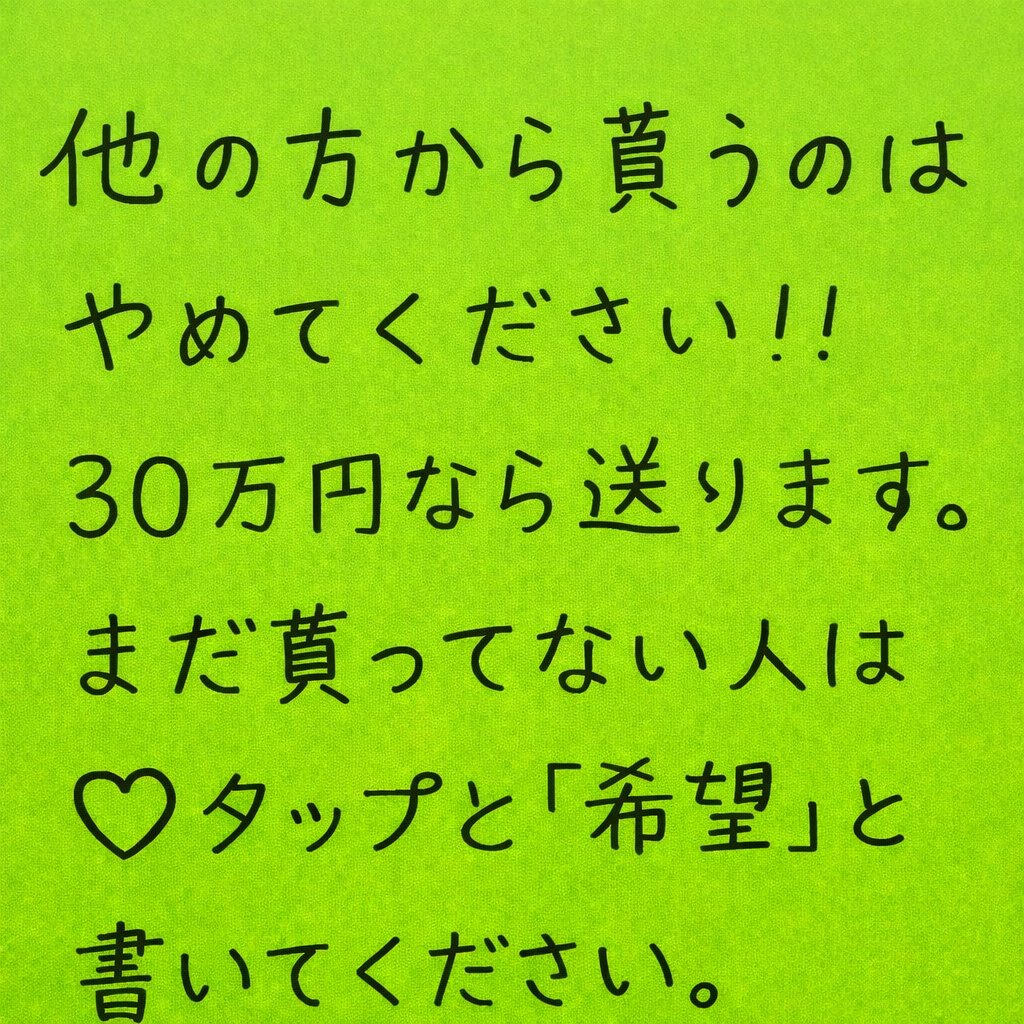 他の方から貰うのは
やめてください!!
30万円なら送ります。
まだ貰ってない人は
♡タップと「希望」と
書いてください。